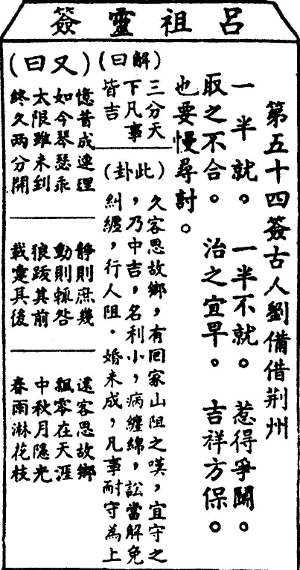 呂祖靈簽
第五十四簽古人劉備借荆州
一半就。一半不就。惹得爭鬭。
取之不合。治之宜早。吉祥方保。
也要慢尋討。
(解曰)
三分天
下凡事
皆吉
(此卦)
久客思故鄉,有回家山阻之嘆,宜守之
,乃中吉,名利小,病纏綿,訟當解免
糾纏,行人阻。婚未成,凡事耐守為上
(又曰)
憶昔成連理
如今琴瑟乖
太限雖未到
終久兩分開
靜則庶幾
動則輒咎
狼跋其前
載疐其後
遠客思故鄉
飄零在天涯
中秋月隱光
春雨淋花枝